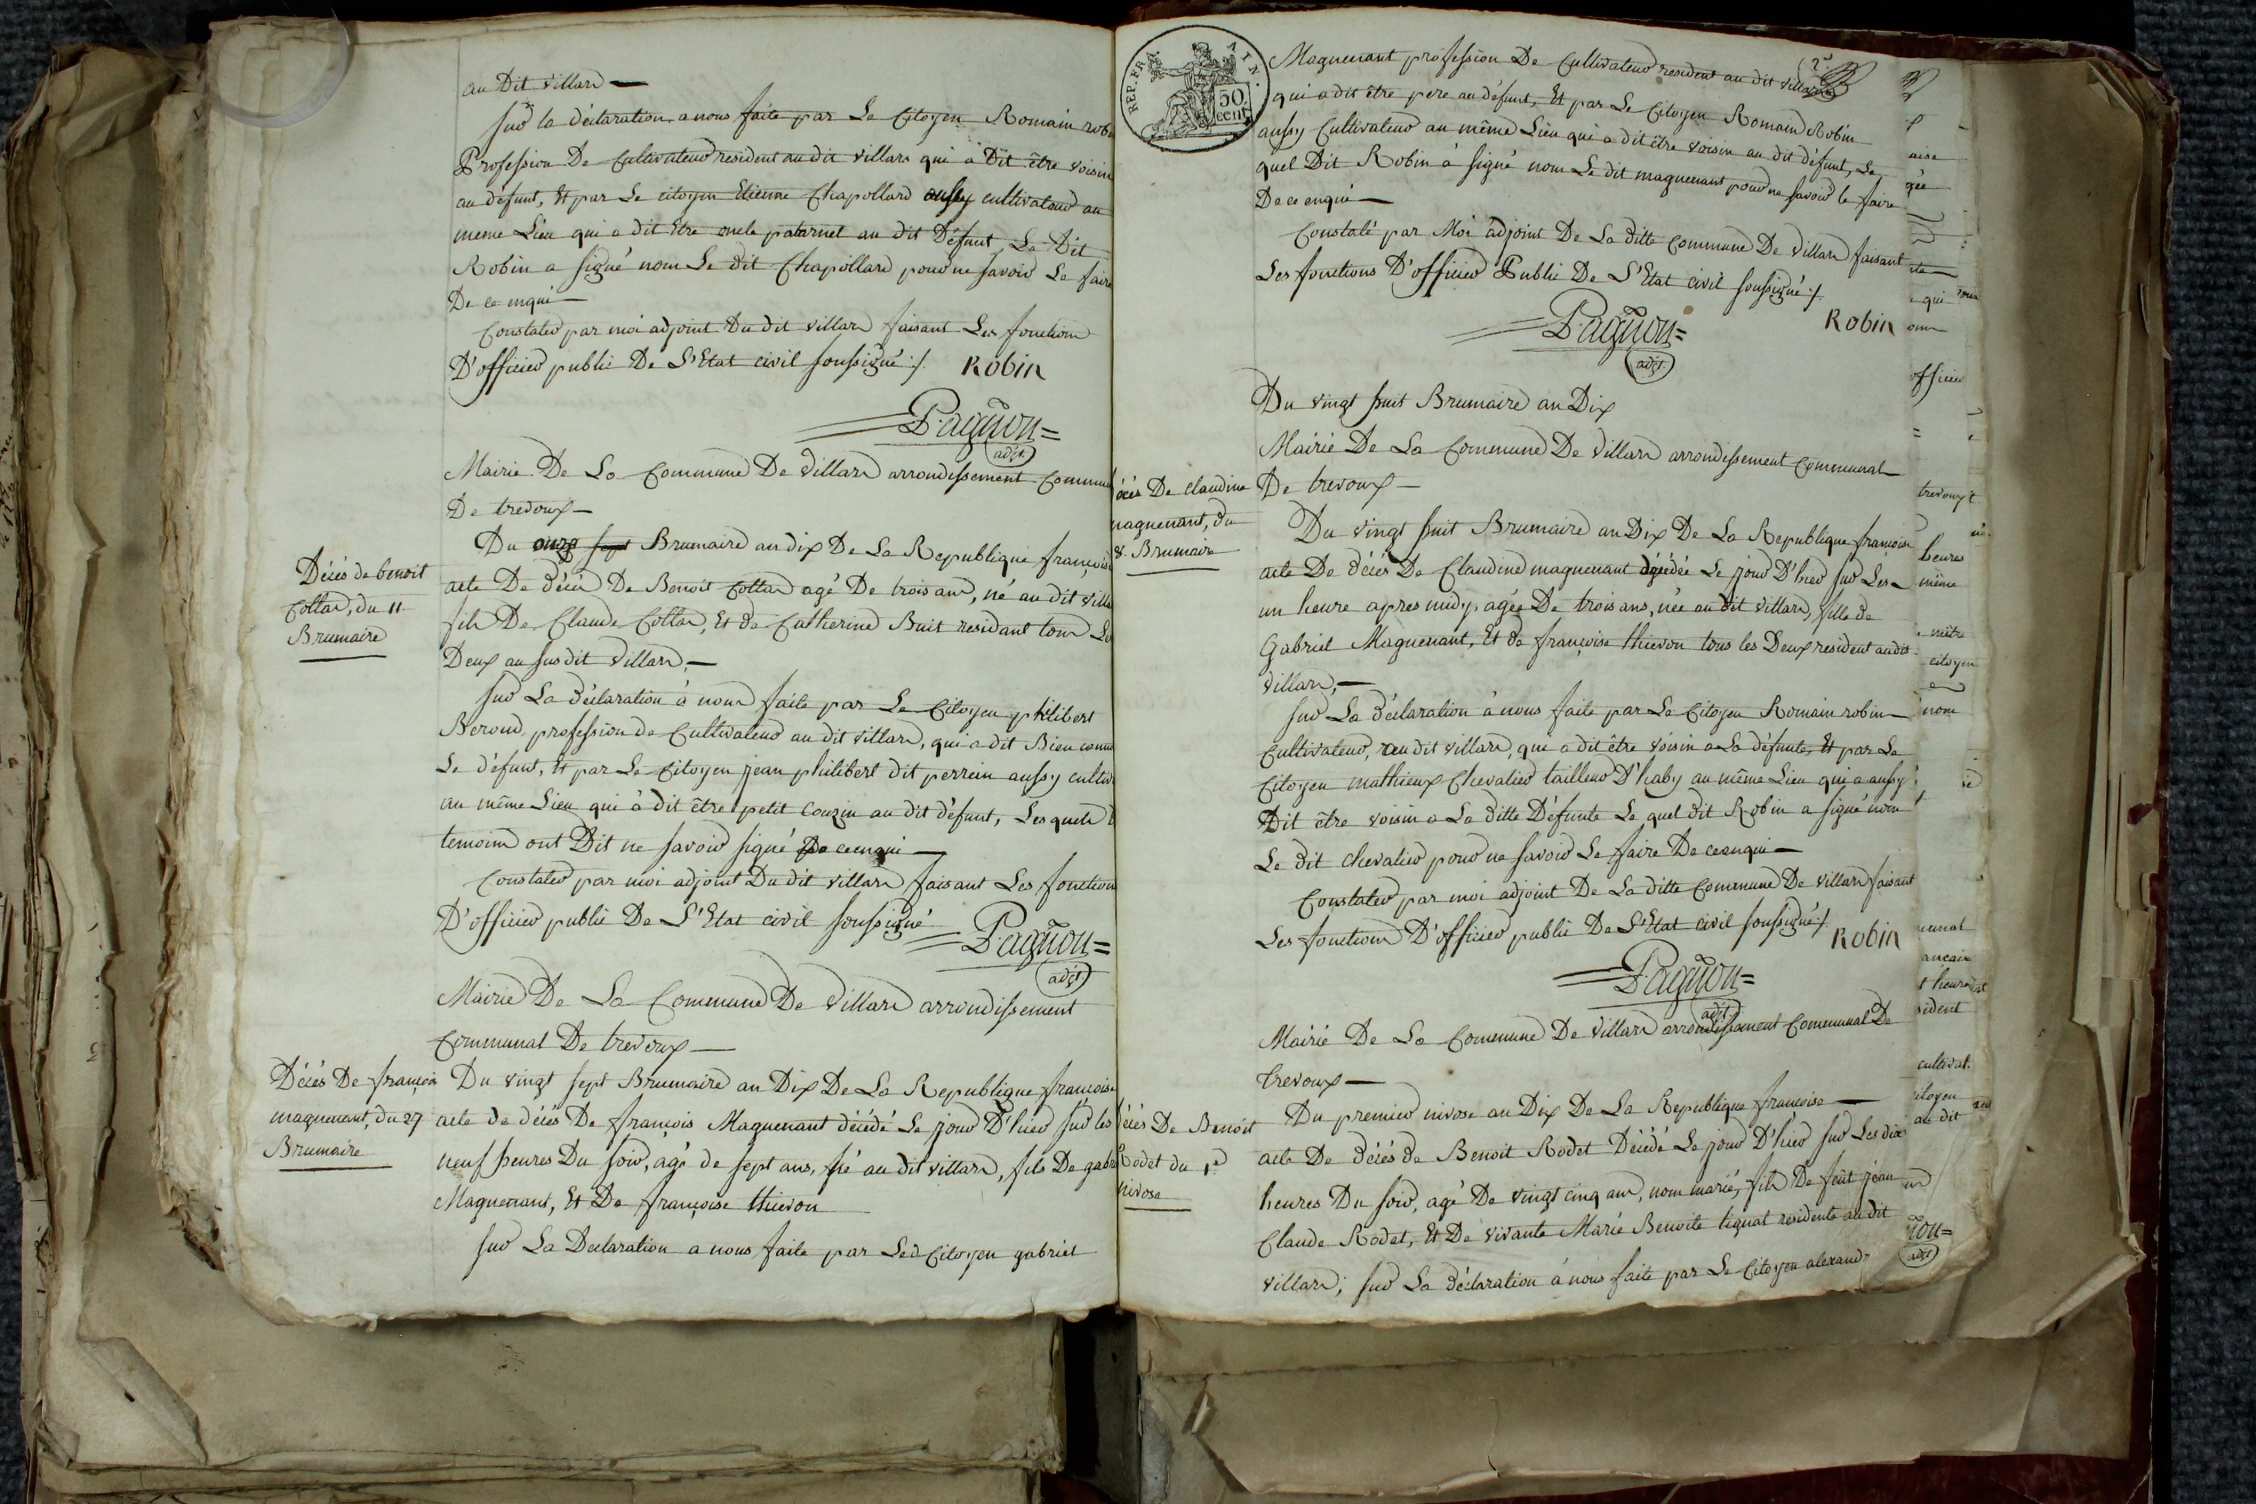 au Dit villard
sur la déclaration a nous faite par Le Citoyen Romain robi
Profession De Cultivateur resident au dit villars qui a Dit être voisin
au défunt, Et par Le citoyen Etienne Chapollard aussy cultivateur au
meme Lieu qui a dit Etre oncle paternel au dit Défunt, Le Dit
Robin a signé nom Le dit Chapollard pour ne savoir Le faire
De ce enquis
Constater par moi adjoint Du dit villars faisant Les fonction
D'officier public De L'Etat civil soussigné ./. Robin
Pagnon
adjt
Mairie De La Commune De villars arrondissement Commun
De trevoux
Décès de benoit
Collar, du 11
Brumaire
Du onze sept Brumaire an dix De La Republique françois
acte De décès De Benoit Collar agé De trois ans, né au dit villa
fils De Claude Collar, Et de Catherine Buit residant tous Le
Deux au susdit villars,
sur La déclaration à nous faite par Le Citoyen philibert
Beroud, profession de Cultivateur au dit villars, qui a dit Bien connu
Le défunt, Et par Le Citoyen jean philibert dit perrein aussy cultiv
au même Lieu qui à dit être petit couzin au dit défunt, Les quels d
temoins ont Dit ne savoir signé De ce enquis
Constater par moi adjoint Du dit villars faisant Les fonction
D'officier public De L'Etat civil soussigné
Pagnon
adjt
Mairie De La Commune De villars arrondissement
Communal De trevoux
Décès De françois
maguenant, du 27
Brumaire
Du vingt sept Brumaire an Dix De La Republique françoise
acte de décès De françois Maguenant décédé Le jour D'hier sur les
neuf heures Du soir, agé de sept ans, né au dit villars, fils De gabr
Maguenant, Et De françoise thievon
sur La Declaration a nous faite par Le Citoyen gabriel
REP. FRA. AIN.
50
cent
2e
Maguenant profession De Cultivateur resident au dit villars
qui a dit être pere au défunt, Et par Le Citoyen Romain Robin
aussy Cultivateur au même Lieu qui a dit être voisin au dit défunt, Le
quel Dit Robin à signé nom Le dit maguenant pour ne savoir le faire
De ce enquis
Constaté par Moi adjoint De La ditte Commune De villars faisant
Les fonctions D'officier Public De L'Etat civil soussigné ./.
Robin
Pagnon
adjt
Du vingt huit Brumaire an Dix
Mairie De La Commune De villars arrondissement Communal
De trevoux
écès De claudine
maguenant, du
8. Brumaire
Du vingt huit Brumaire an Dix De La Republique françoise
acte De décès De Claudine maguenant décédée Le jour D'hier sur Les
un heure apres midy, agée De trois ans, née au dit villars, fille de
Gabriel Maguenant, Et de françoise thievon tous les Deux resident au dit
villars,
sur La déclaration à nous faite par Le Citoyen Romain robin
Cultivateur, au dit villars, qui a dit être voisin a La défunte, Et par Le
Citoyen mathieux Chevalier tailleur D'haby au même Lieu qui a aussy
Dit être voisin a La ditte Défunte Le quel dit Robin a signé nom
Le dit chevalier pour ne savoir Le faire De ce enquis
Constater par moi adjoint De La ditte Commune De villars faisant
Les fonctions D'officier public De L'Etat civil soussigné ./. Robin
Pagnon
adjt
Mairie De La Commune De villars arrondissement Communal De
trevoux
écès De Benoit
Rodet du 1er
nivose
Du premier nivose an Dix De La Republique françoise
acte De décès de Benoit Rodet Décédé Le jour D'hier sur Les dix
heures Du soir, agé De vingt cinq ans, nom marié, fils De feüt jean
Claude Rodet, Et De vivante Marie Benoite tignat residente au dit
villars; sur La déclaration à nous faite par Le Citoyen alexand
aise
gée
qui
officier
trevoux
heures
même
mètre
citoyen
nom
munal
ancaise
heure
sident
cultivat.
citoyen
au dit
non
adjt